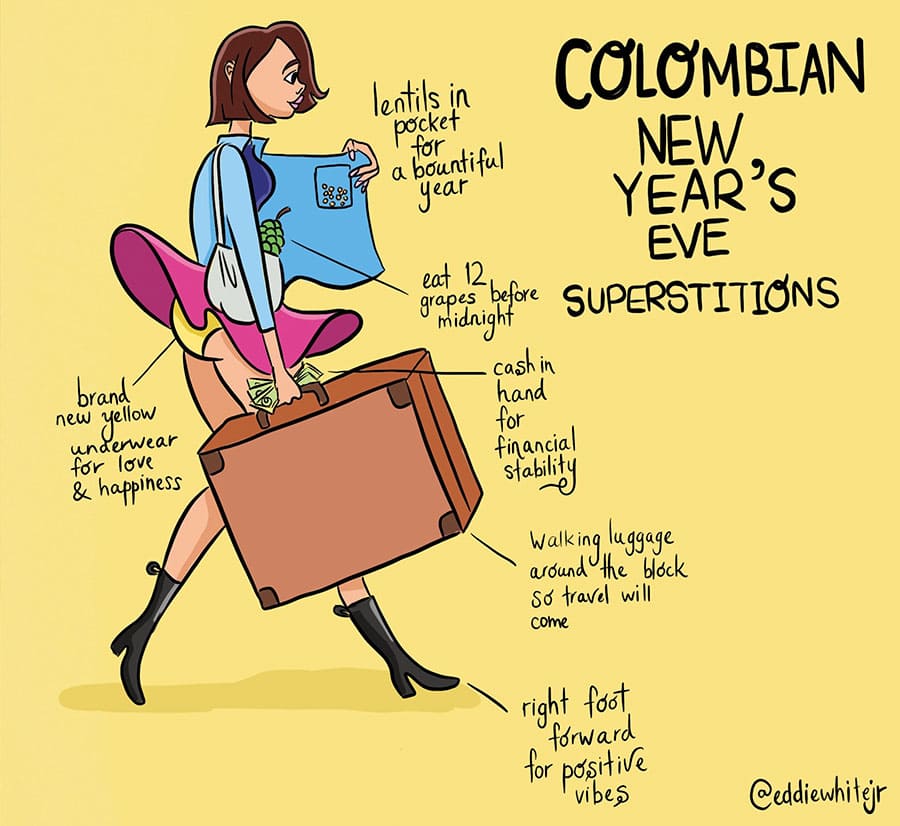 COLOMBIAN
NEW
YEAR'S
EVE
SUPERSTITIONS
lentils in
pocket
for
a bountiful
year
eat 12
grapes before
midnight
cash in
hand
for
financial
stability
brand
new yellow
underwear
for love
& happiness
walking luggage
around the block
so travel will
come
right foot
forward
for positive
vibes
@eddiewhitejr